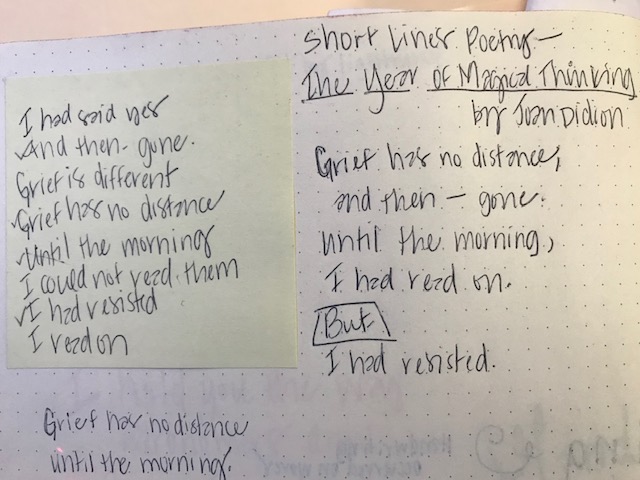 I had said yes
And then - gone.
Grief is different
Grief has no distance
Until the morning
I could not read them
I had resisted
I read on
Grief has no distance
until the morning.
Short Lines Poetry—
The Year of Magical Thinking
by Joan Didion
Grief has no distance,
and then — gone.
Until the morning,
I had read on.
But
I had resisted.